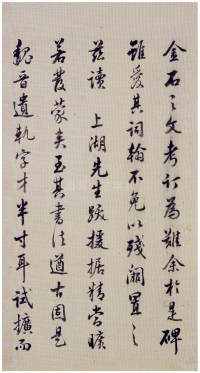 金石之文考訂為難余於是碑
雖愛其詞翰不免以殘闕置之
茲讀 上湖先生跋援據精當曠
若發蒙矣至其書法遒古固是
魏晉遺軌字才半寸耳試擴而